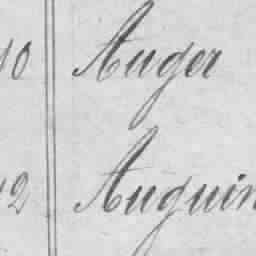 10 Auger
12 Auguin